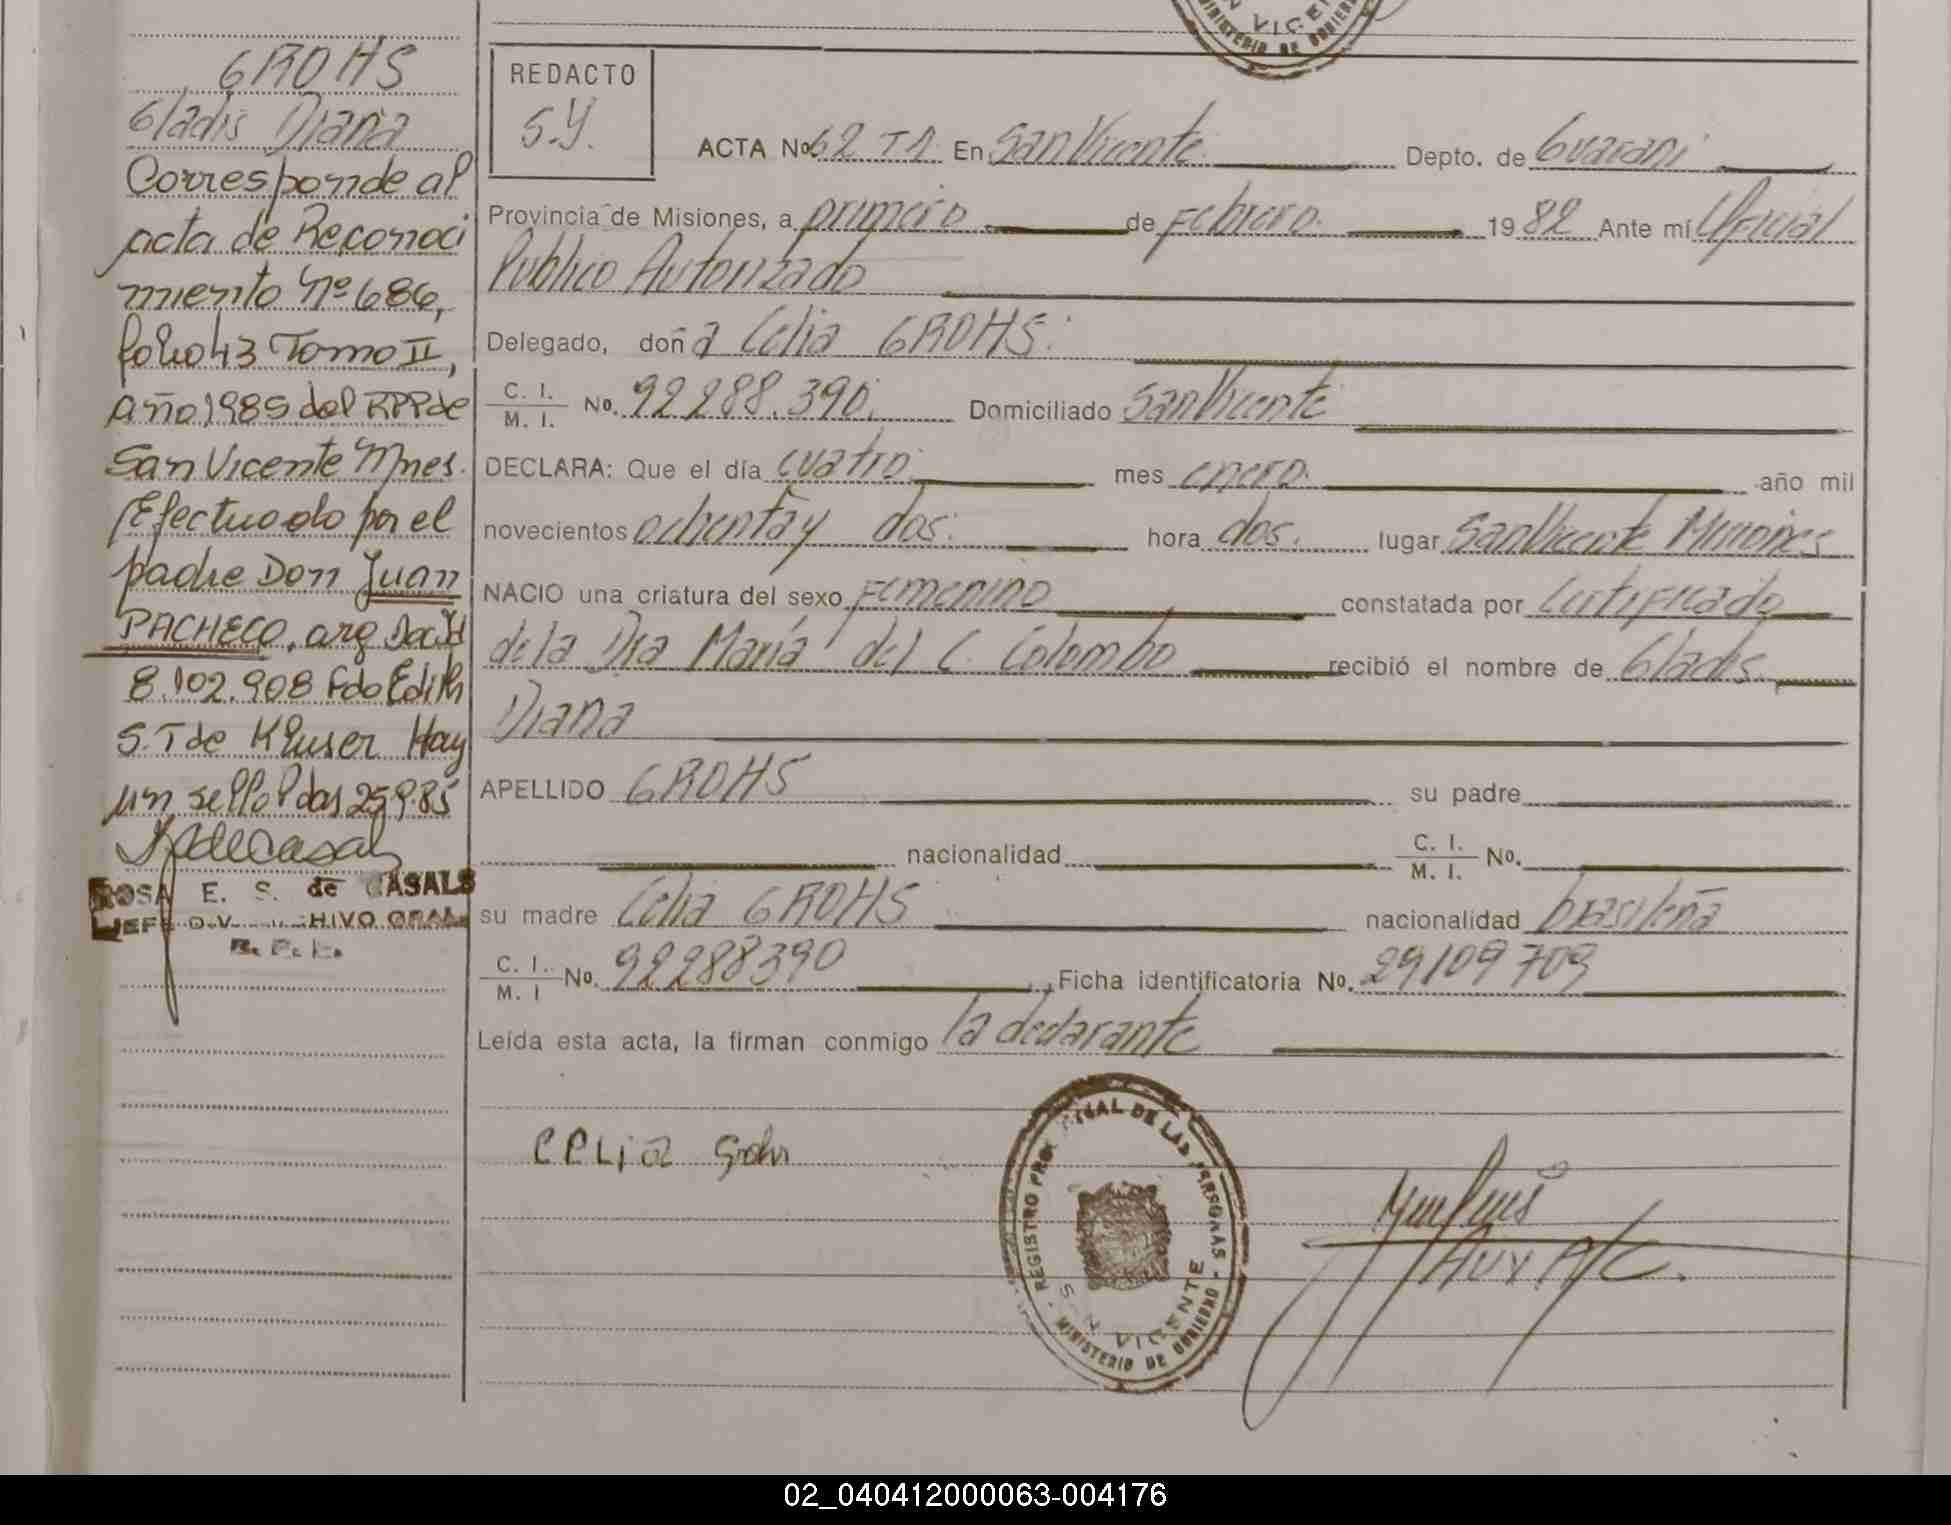 N VICEN
MINISTERIO DE GOBIERN
GROHS
Gladis Diana
Corresponde al
acta de Reconoci
miento Nº 686,
folio 43 Tomo II,
año 1985 del RPP de
San Vicente Mnes.
Efectuado por el
padre Don Juan
PACHECO, arg Doc Id
8.102.908 Fdo Edith
S. T de Kluser Hay
un sello Pdas 25.9.85
ROSA E. S. de CASALS
JEFE DIV. HIVO GRAL
R. P. P.
REDACTO
S.Y.
ACTA Nº 62 T1 En San Vicente Depto. de Guarani
Provincia de Misiones, a primero de Febrero 1982 Ante mí Oficial
Publico Autorizado
Delegado, doña Celia GROHS:
C. I. / M. I. No. 92288.390. Domiciliado San Vicente
DECLARA: Que el día cuatro mes enero. año mil
novecientos ochenta y dos. hora dos. lugar San Vicente Misiones
NACIO una criatura del sexo Femenino constatada por Certificado
de la Dra María del C. Colombo recibió el nombre de Gladis
Diana
APELLIDO GROHS su padre
nacionalidad C. I. / M. I. No.
su madre Celia GROHS nacionalidad brasileña
C. I. / M. I No. 92288390 Ficha identificatoria No. 29109709
Leída esta acta, la firman conmigo la declarante
CELia Grohs
REGISTRO PROV NCIAL DE LAS PERSONAS
SAN VICENTE
MINISTERIO DE GOBIERNO
AUX A/C.
02_040412000063-004176